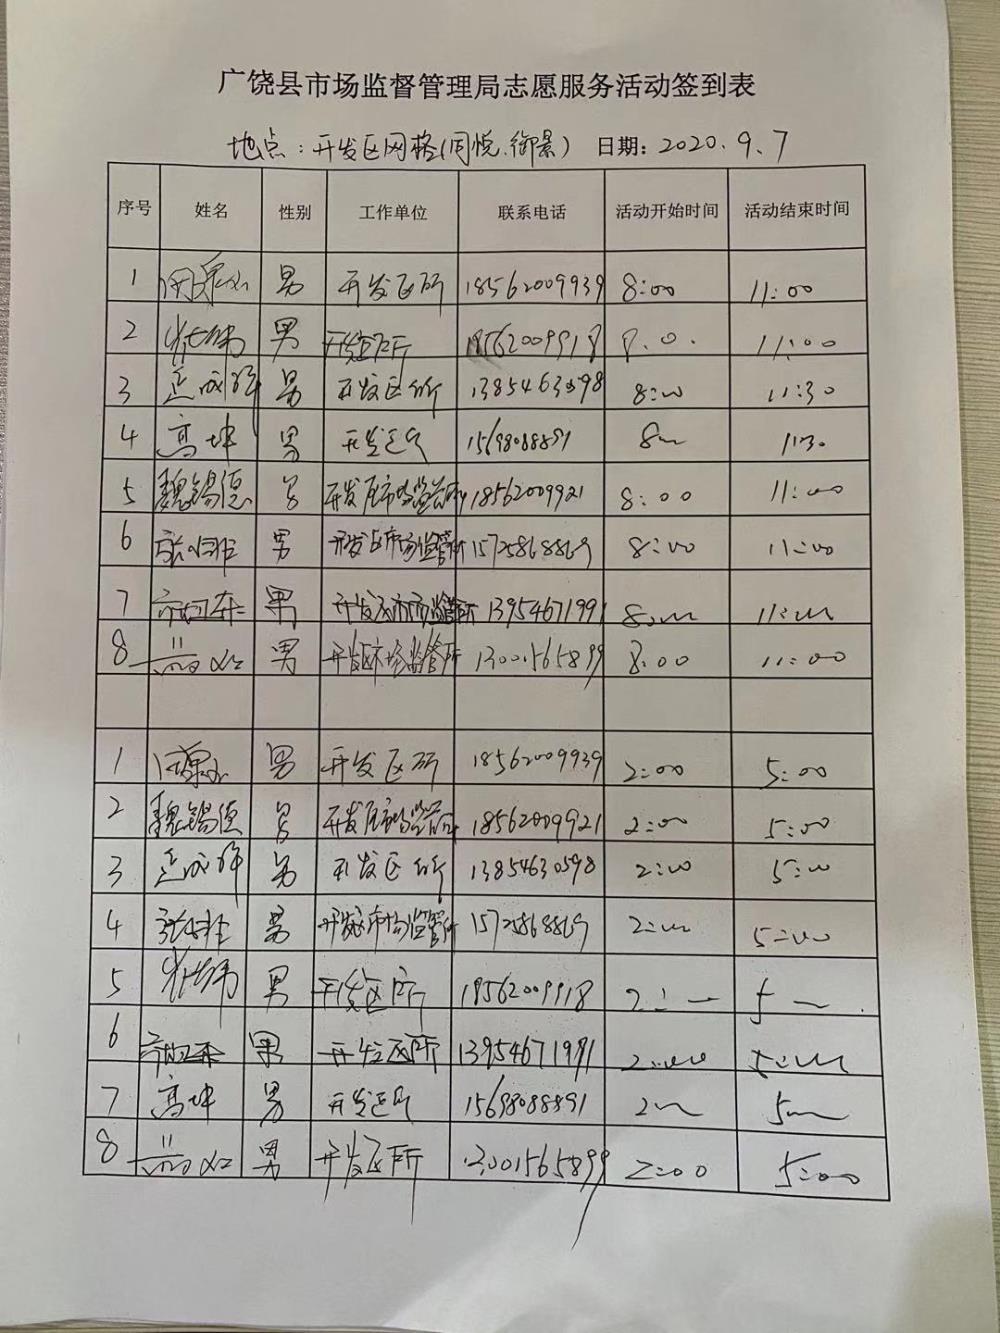 广饶县市场监督管理局志愿服务活动签到表
地点：开发区网格(同悦.御景) 日期：2020.9.7
序号 姓名 性别 工作单位 联系电话 活动开始时间 活动结束时间
1 男 开发区所 18562009939 8:00 11:00
2 男 开发区所 18562009918 8.0. 11:00
3 男 开发区所 13854630598 8:00 11:30
4 高坤 男 开发区所 15698088891 8 1130
5 魏锡德 男 开发区市场监管所 18562009921 8:00 11:00
6 男 开发区市场监管所 15725868869 8:00 11:00
7 男 开发区市场监管所 13954671991 8:00 11:00
8 男 开发区市场监管所 13001565899 8:00 11:00
1 男 开发区所 18562009939 2:00 5:00
2 魏锡德 男 开发区市场监管所 18562009921 2:00 5:00
3 男 开发区所 13854630598 2:00 5:00
4 男 开发区市场监管所 15725868869 2:00 5:00
5 男 开发区所 18562009918 2: 5
6 男 开发区所 13954671991 2:00 5:00
7 高坤 男 开发区所 15698088891 2 5
8 男 开发区所 13001565899 2:00 5:00